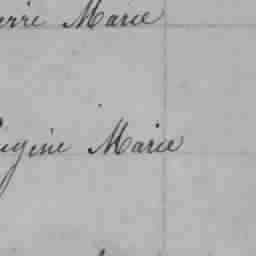 erre Marie
Eugène Marie